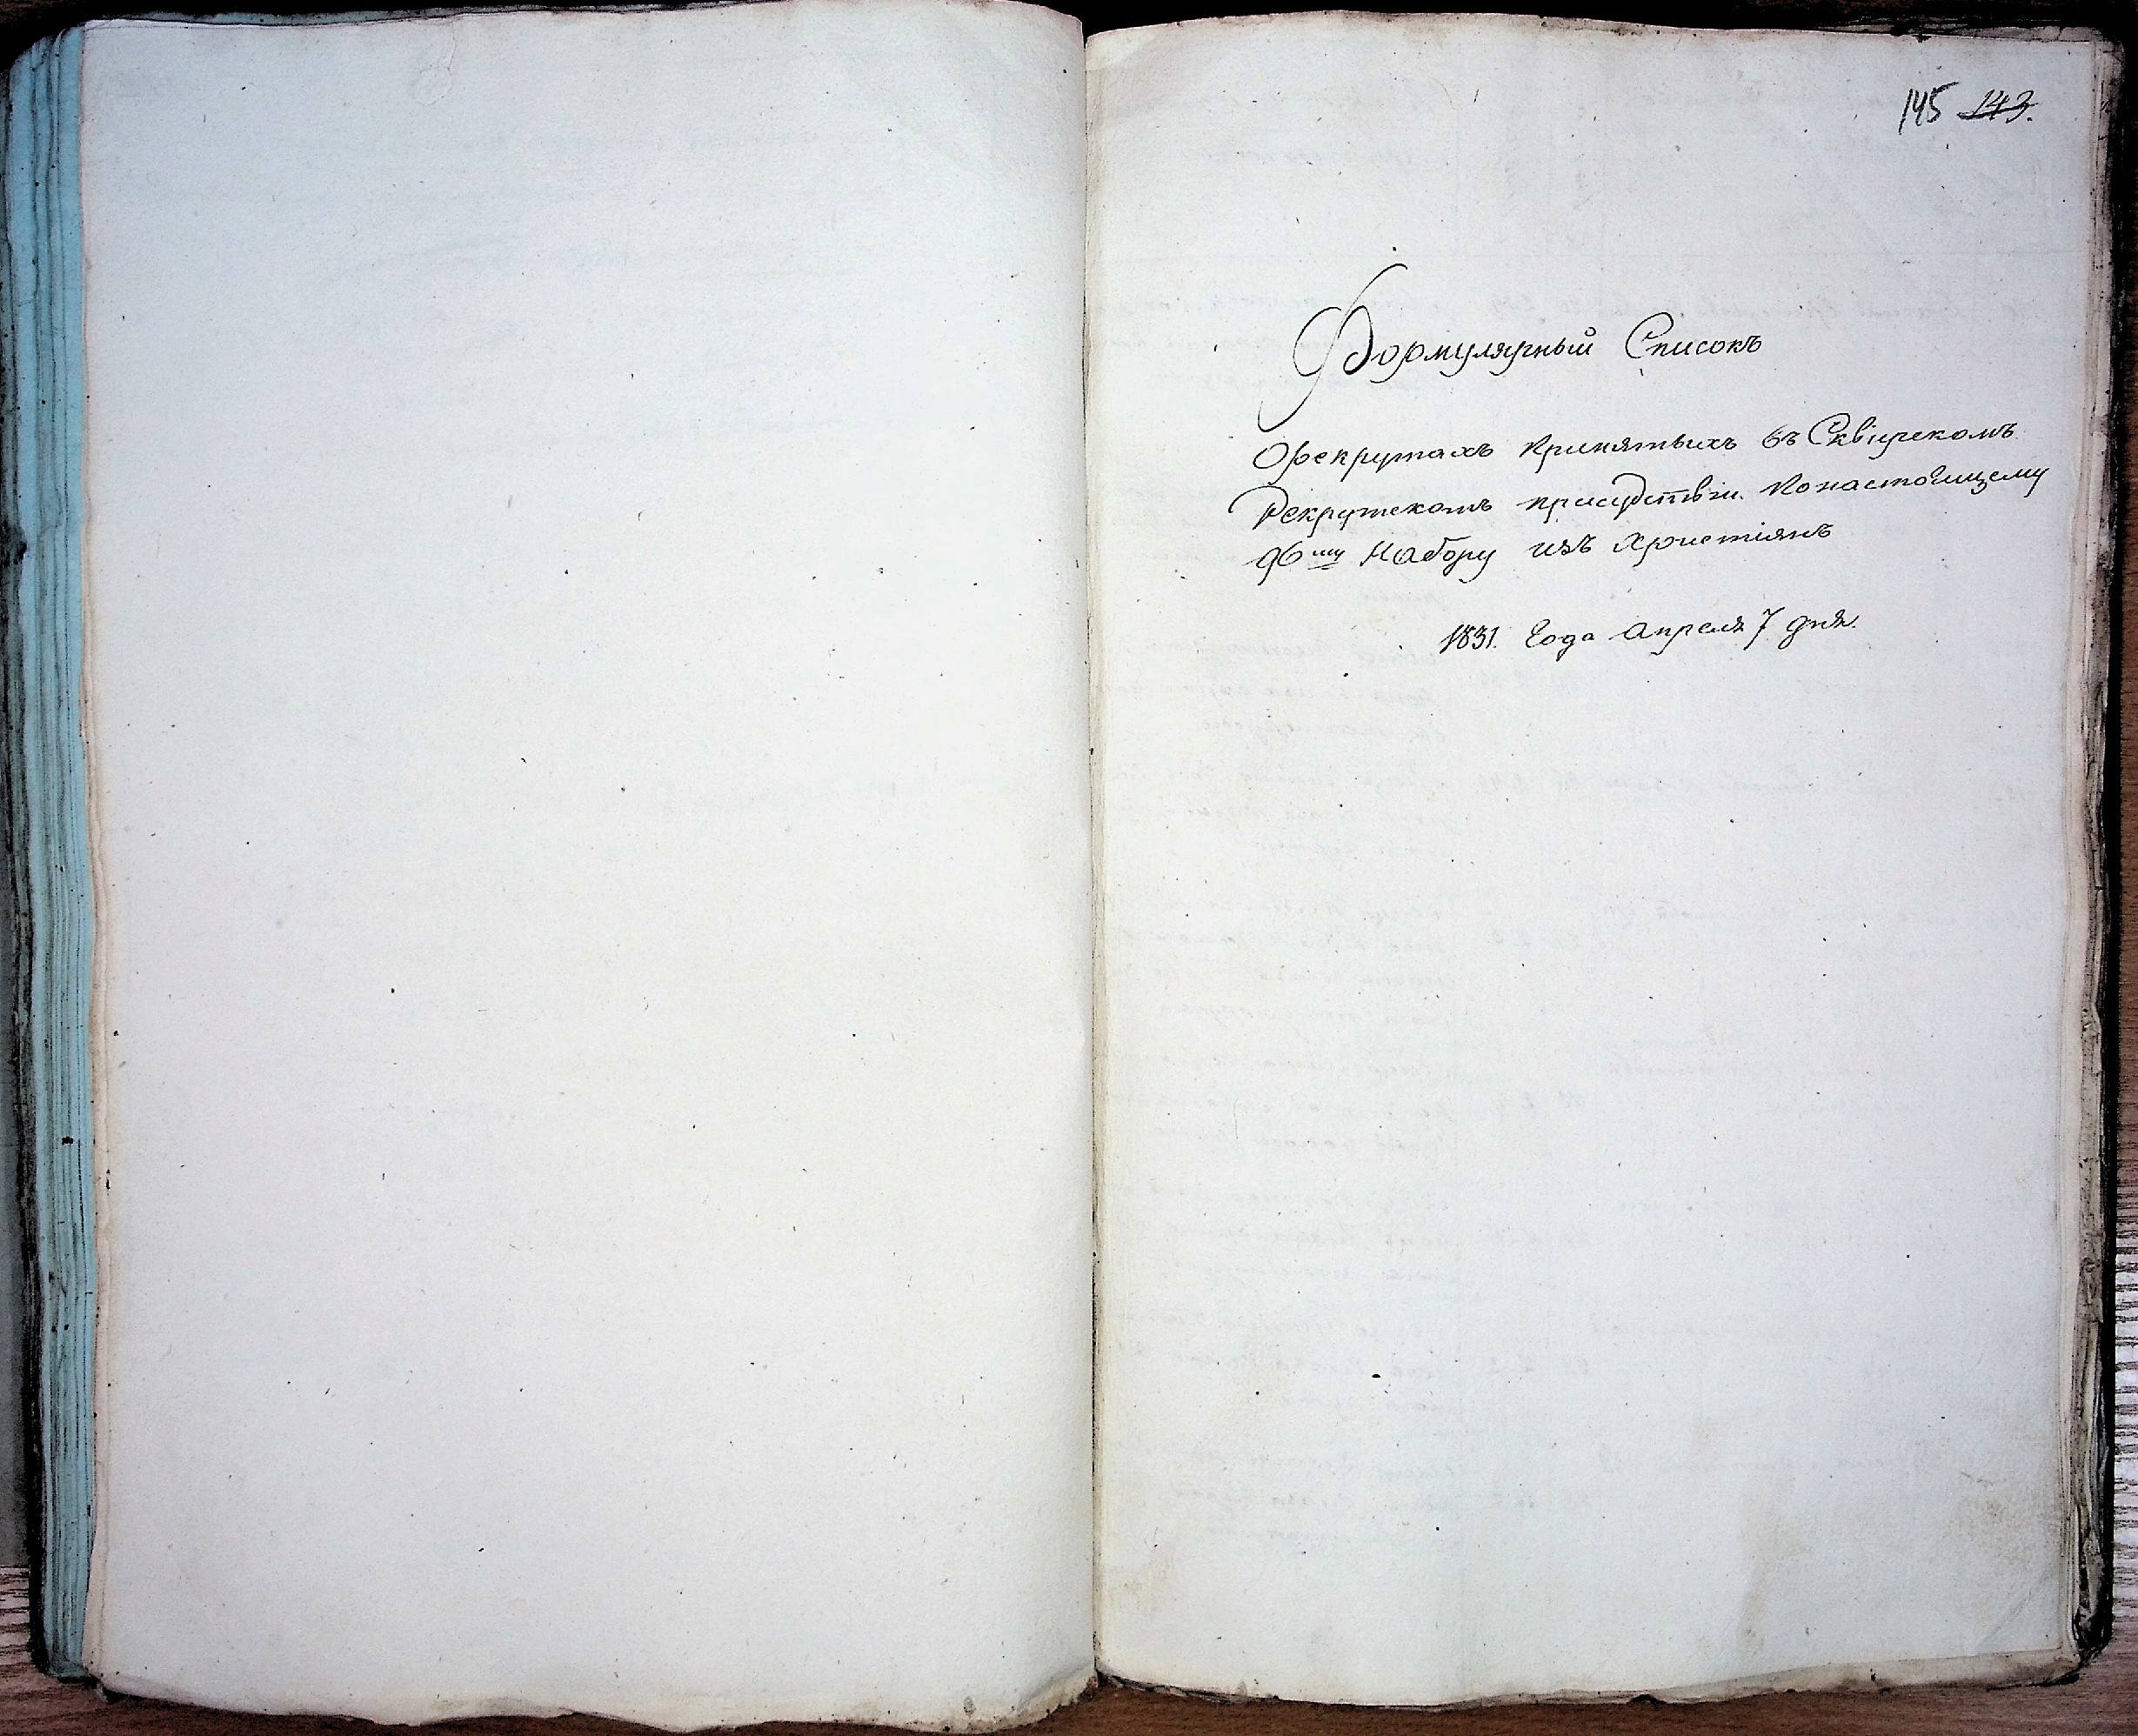 145 143.
Формулярный Списокъ
Орекрутахъ Принятыхъ въ Сквирскомъ
Рекрутскомъ присудствіи Понастоящему
96му Набору изъ Христіянъ
1831. Года Апреля 7 дня.